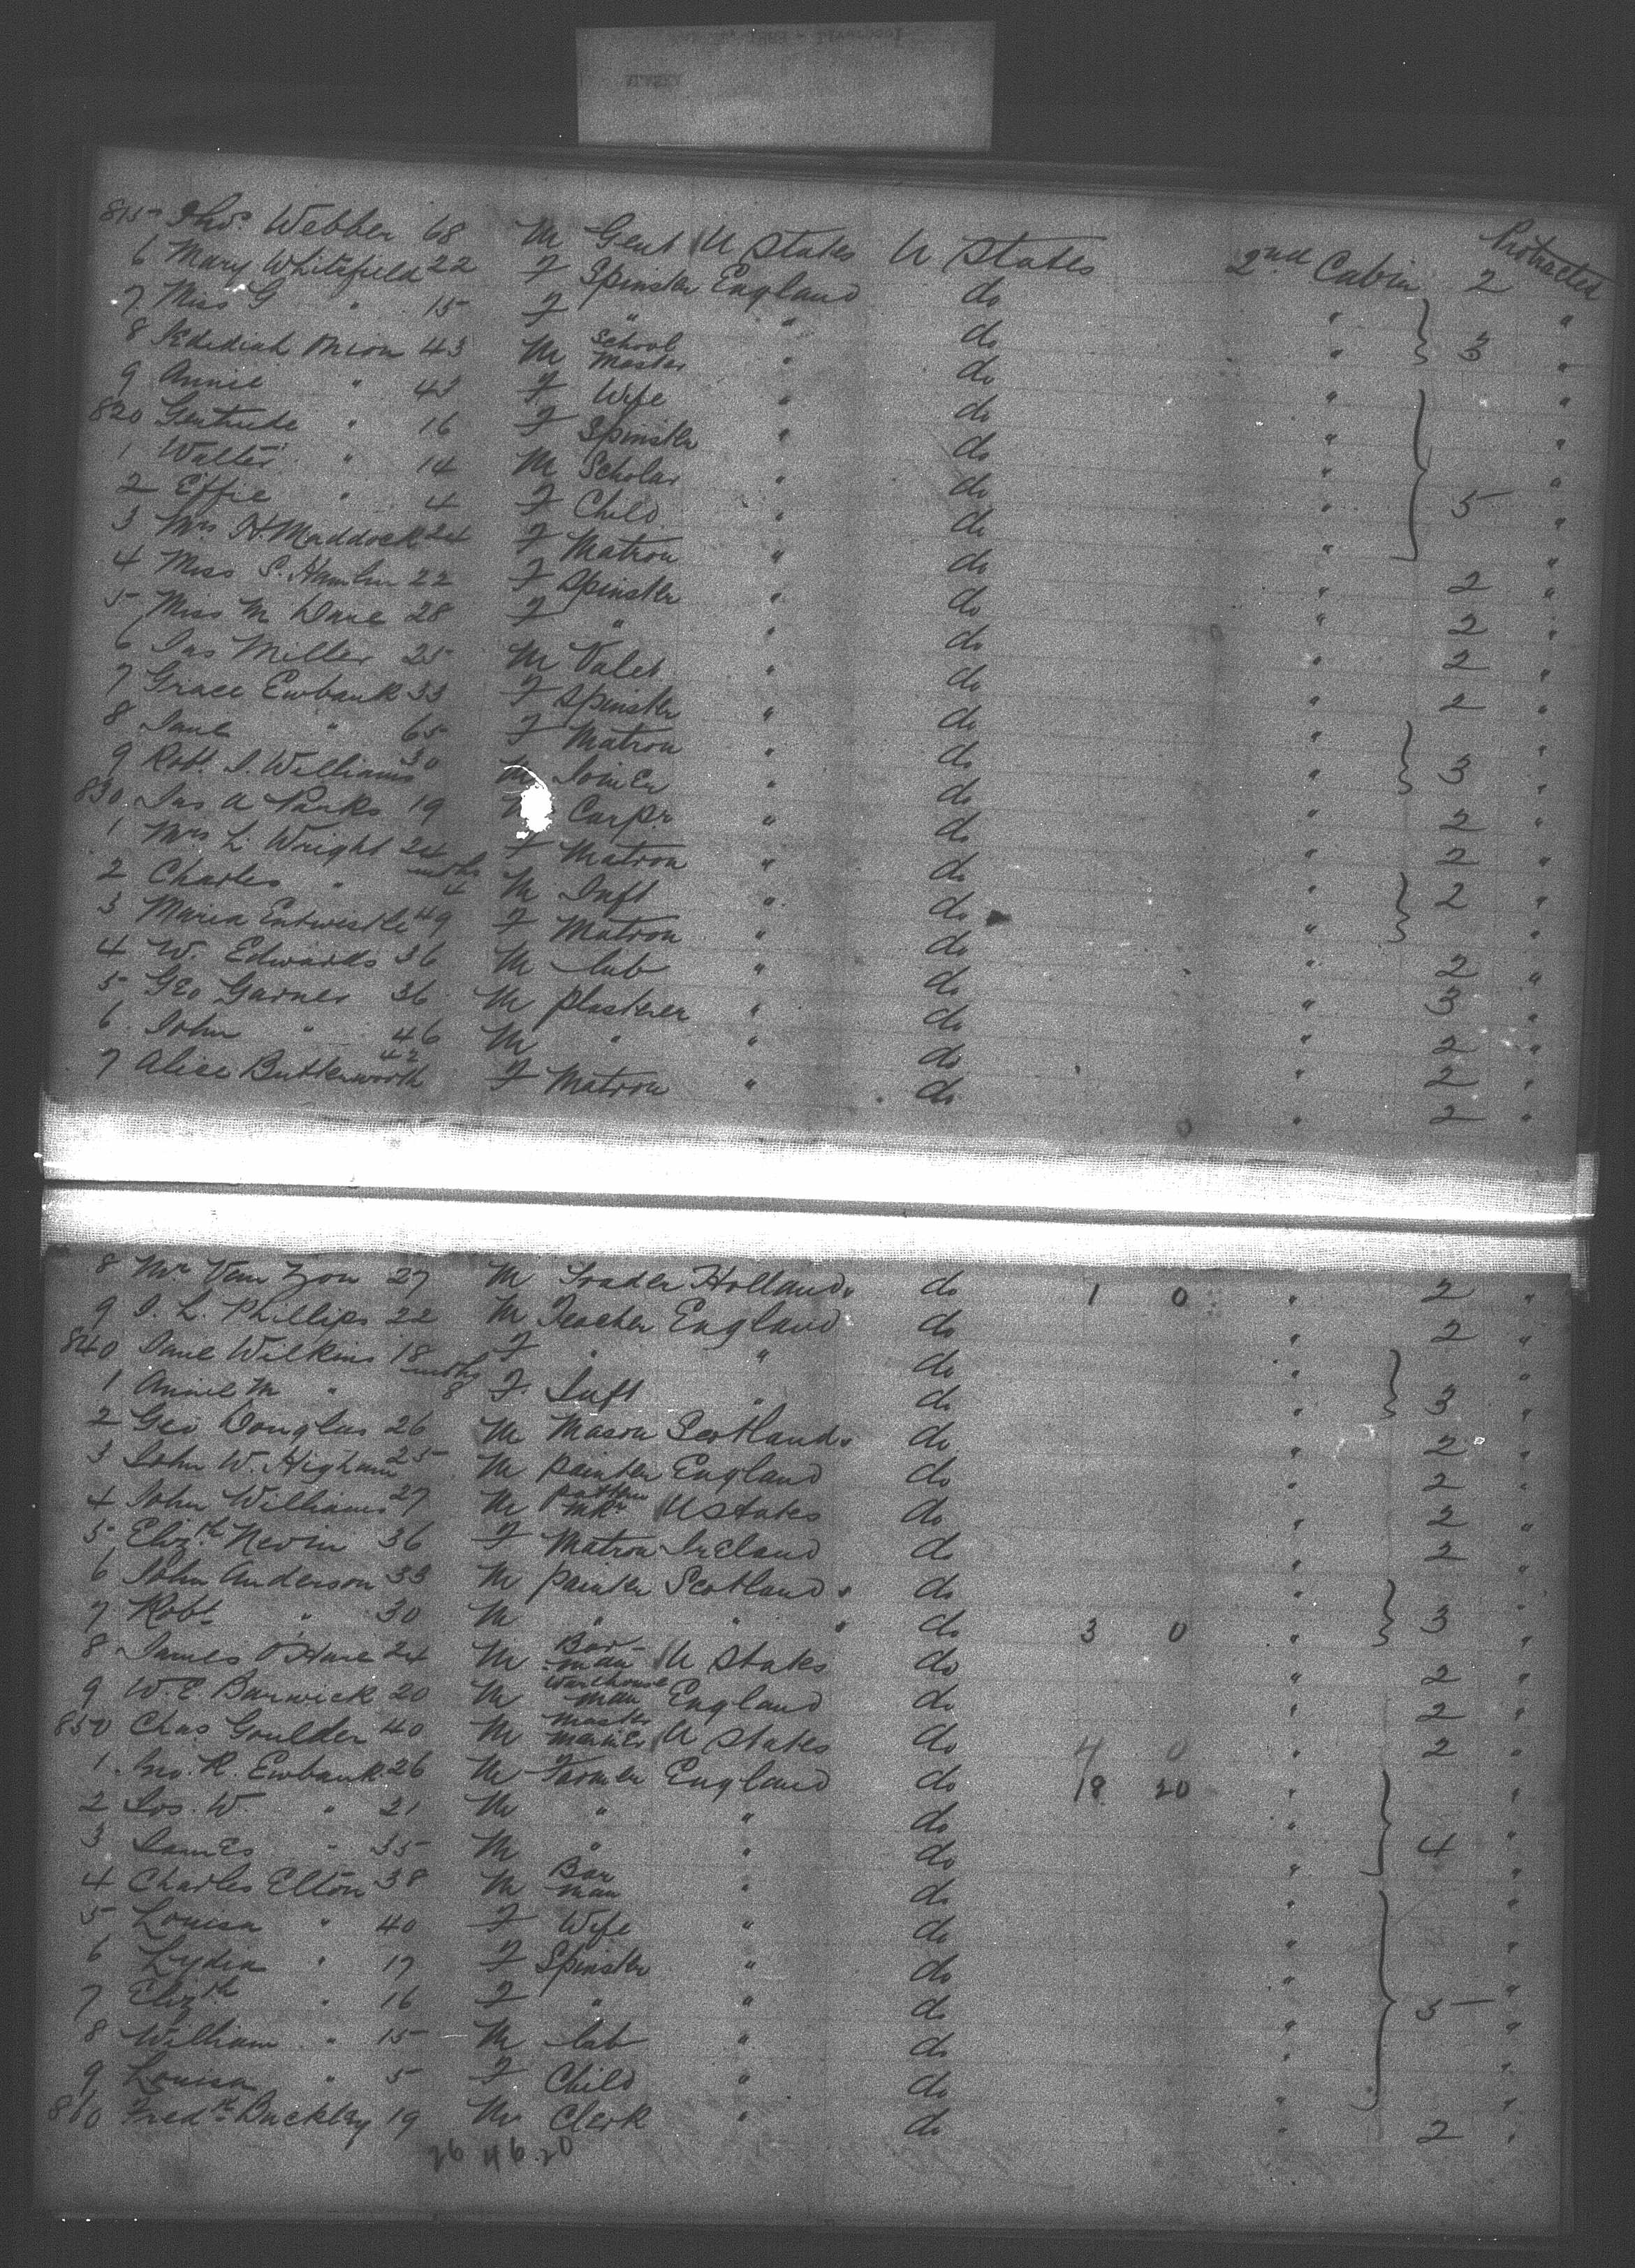 815 Thos. Webber 68 M Gent U States U States 2nd Cabin 2 Protracted
6 Mary Whitefield 22 F Spinster England do " "
7 Miss G " 15 F " " do " 3 "
8 Jedidiah 43 M School Master " do " "
9 Annie " 43 F Wife " do " "
820 Gertrude " 16 F Spinster " do " "
1 Walter " 14 M Scholar " do " 5 "
2 Effie " 4 F Child " do " "
3 Mrs H. Maddock 24 F Matron " do " 2 "
4 Miss S. 22 F Spinster " do " 2 "
5 Miss M Dane 28 F " " do " 2 "
6 Jas Miller 25 M Valet " do " 2 "
7 Grace Ewbank 33 F Spinster " do " "
8 Jane " 65 F Matron " do " 3 "
9 Robt. J. Williams 30 M Joiner " do " 2 "
830 Jas A Parks 19 M Carpr " do " 2 "
1 Mrs L. Wright 24 F Matron " do " 2 "
2 Charles " mths 4 M Inft " do " "
3 Maria Entwistle 49 F Matron " do " 2 "
4 W. Edwards 36 M lab " do " 3 "
5 Geo Garnes 36 M plasterer " do " 2 "
6 John " 46 M " " do " 2 "
7 Alice Butterworth 42 F Matron " do " 2 "
8 Mr Van Zon 27 M Trader Holland do 1 0 " 2 "
9 J. L. Phillips 22 M Teacher England do " 2 "
840 Jane Wilkins 18 F " " do " "
1 Annie M " mths 8 F Inft " do " 3 "
2 Geo Douglas 26 M Mason Scotland do " 2 "
3 John W. Higham 25 M painter England do " 2 "
4 John Williams 27 M pattern mkr U States do " 2 "
5 Elizth Nevin 36 F Matron Ireland do " 2 "
6 John Anderson 33 M painter Scotland do " "
7 Robt " 30 M " " do 3 0 " 3 "
8 James O'Hare 24 M Bar-man U States do " 2 "
9 W. E. Barwick 20 M Warehouse man England do " 2 "
850 Chas Goulder 40 M Master mariner U States do 4 0 " 2 "
1 Jno. R. Ewbank 26 M Farmer England do 18 20 " "
2 Jos. W. " 21 M " " do " 4 "
3 James " 35 M " " do " "
4 Charles Elton 38 M Bar man " do " "
5 Louisa " 40 F Wife " do " "
6 Lydia " 17 F Spinster " do " "
7 Elizth " 16 F " " do " 5 "
8 William " 15 M lab " do " "
9 Louisa " 5 F Child " do " "
860 Fredk Buckley 19 M Clerk " do " 2 "
26 46 20